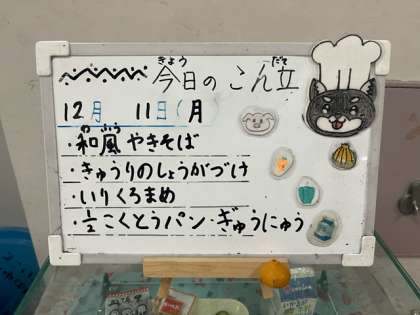 今日のこん立
きょう だて
12月 11日(月)
・和風やきそば
わふう
・きゅうりのしょうがづけ
・いりくろまめ
・1/2こくとうパン・ぎゅうにゅう